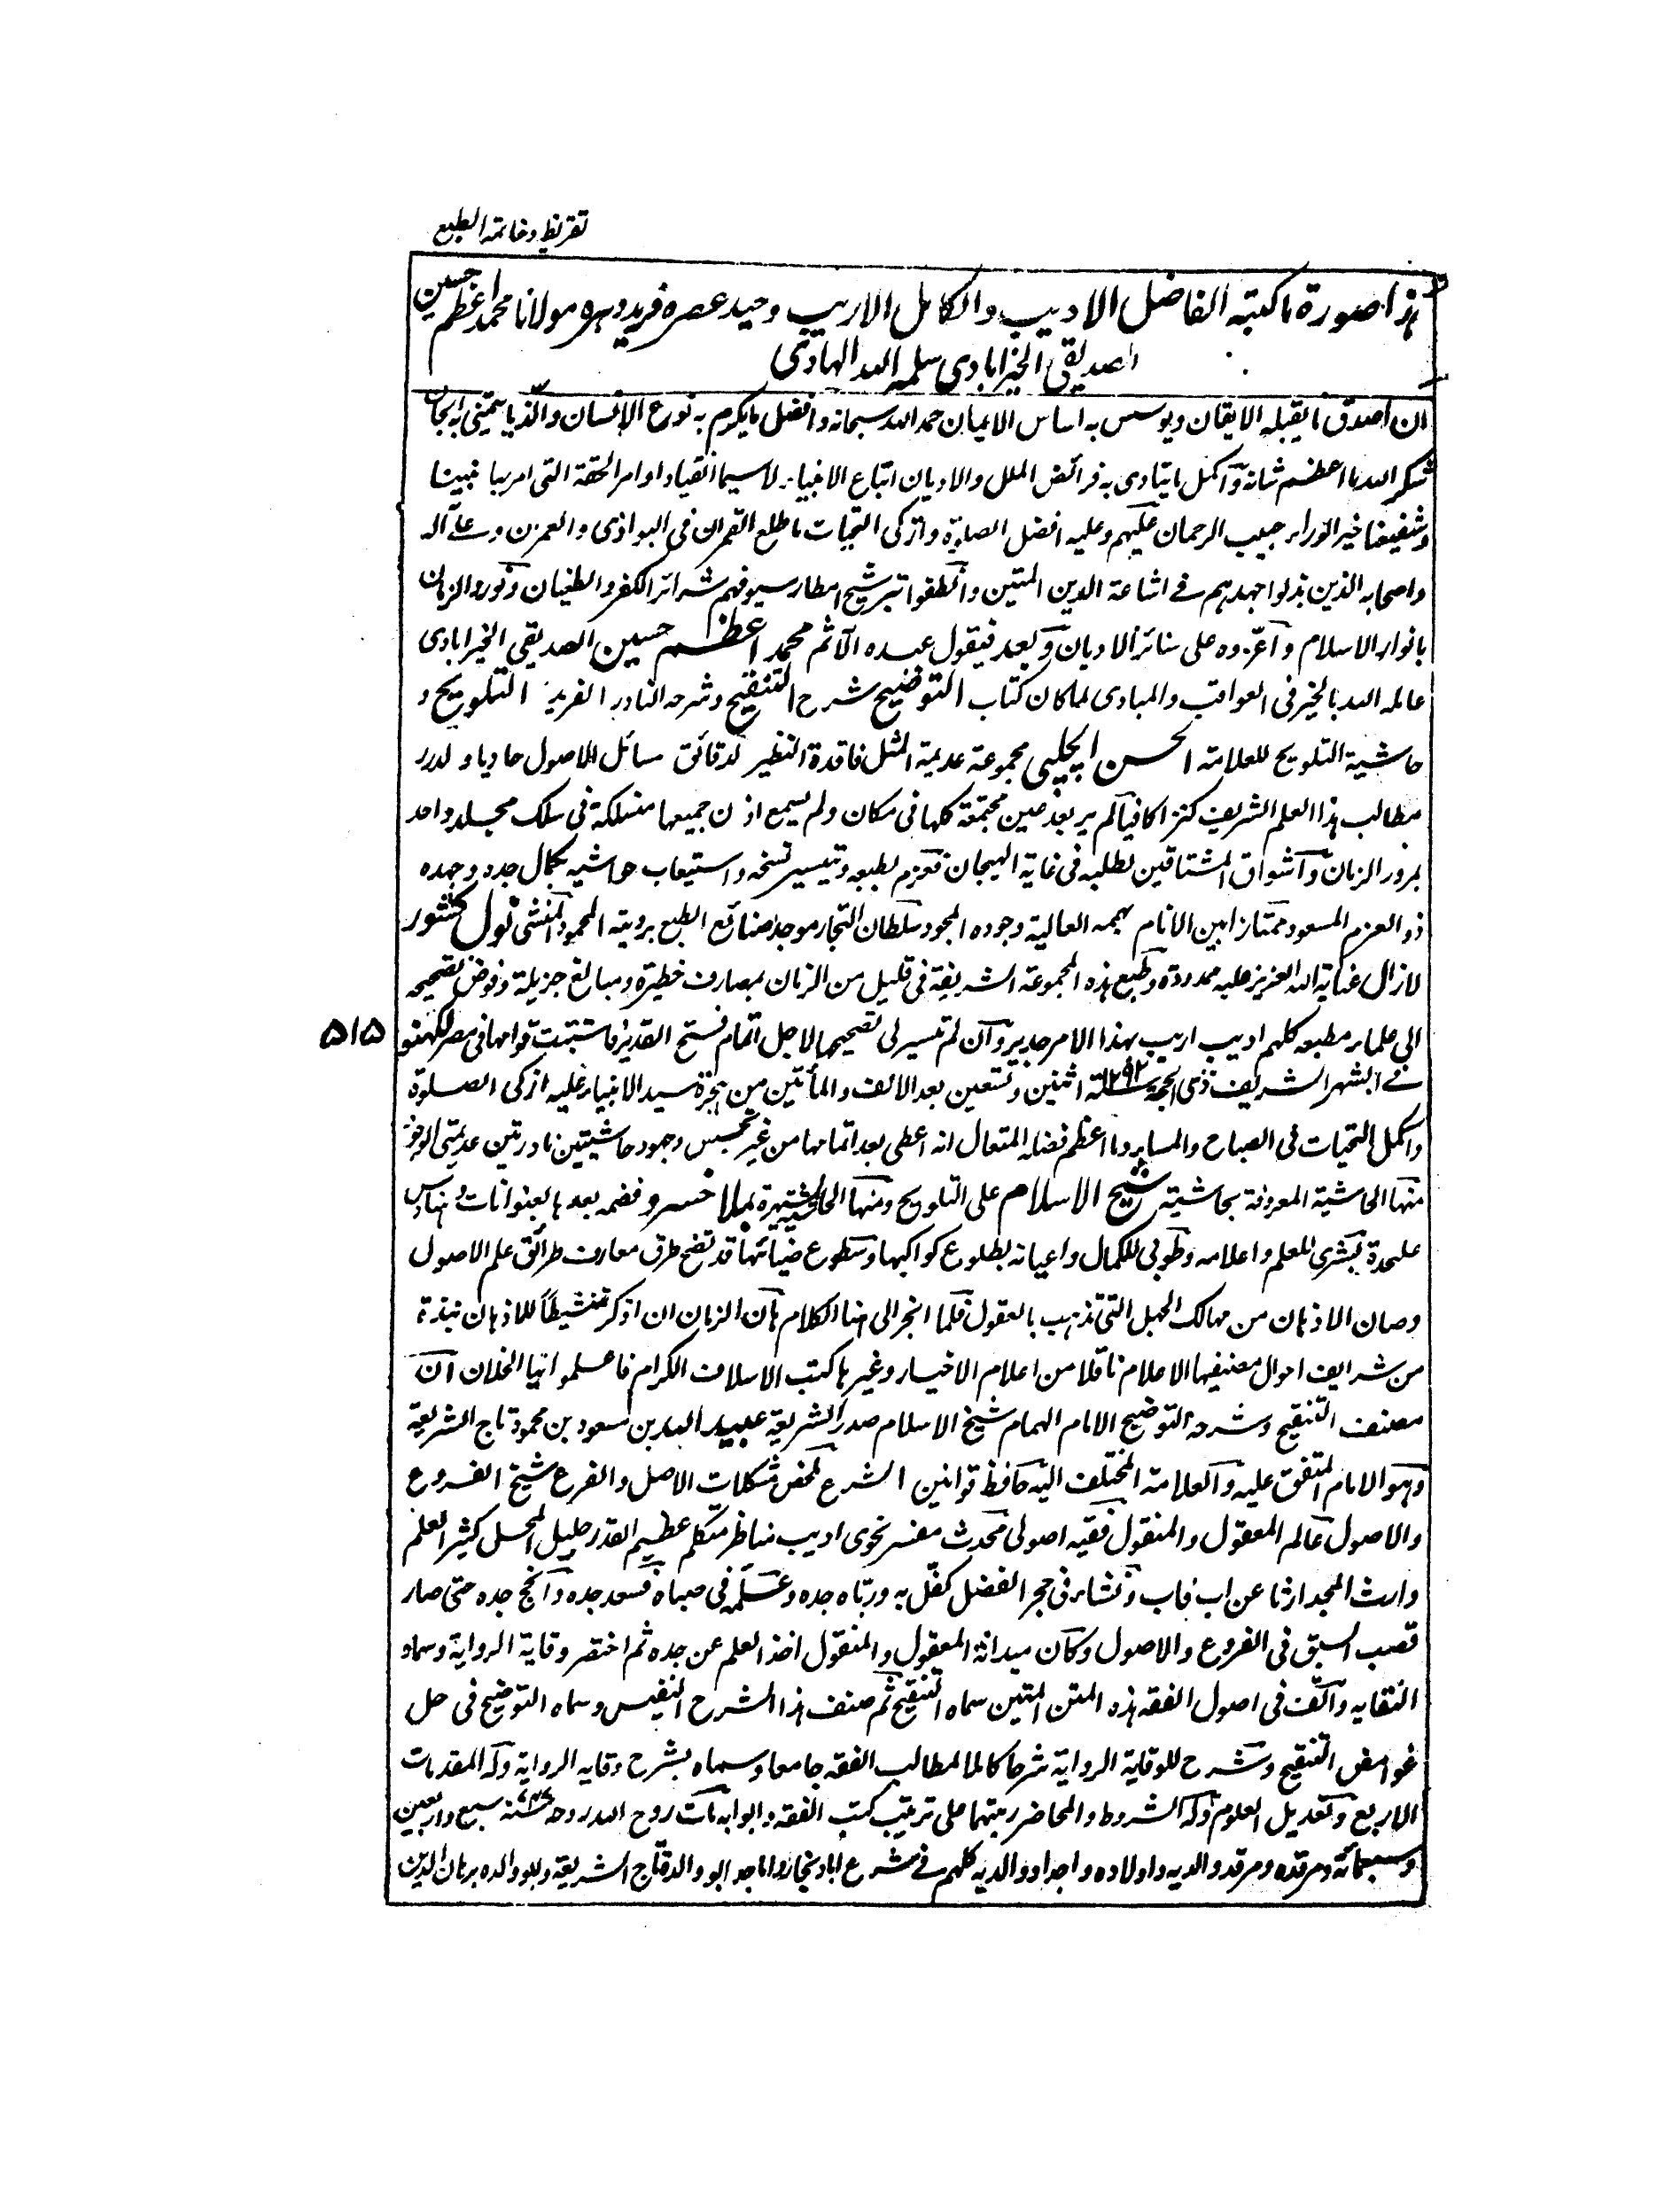 تقريظ وخاتمة الطبع
هذا صورة ما كتبه الفاضل الاديب والكامل الاريب وحيد عصره فريد دهره مولانا محمد اعظم حسين
الصديقي الخيرابادي سلمه الله الهادي
ان اصدق ما يقبله الايقان ويوسس به اساس الايمان حمد الله سبحانه وافضل ما يكرم به نوع الانسان والذ ما يتمنى به
شكر الله ما اعظم شانه واكمل ما يتادى به فرائض الملل والاديان اتباع الانبياء لاسيما انقياد اوامر الحقة التى امر بها نبينا
وشفيعنا خير الوراء حبيب الرحمان عليهم وعليه افضل الصلوة وازكى التحيات ما طلع القمران فى البوادى والعمرن وعلے آله
واصحابه الذين بذلوا جهدهم فے اشاعة الدين المتين وانطفوا بترشيح امطار سيوفهم شرائر الكفر والطغيان ونوروا الزمان
بانوار الاسلام واعزوه على سائر الاديان وبعد فيقول عبده الآثم محمد اعظم حسين الصديقي الخيرابادى
عامله الله بالخير فى العواقب والمبادى لما كان كتاب التوضيح شرح التنقيح وشرحه النادر الفريد التلويح و
حاشية التلويح للعلامة الحسن الچلپى مجموعة عديمة المثل فاقدة النظير لدقائق مسائل الاصول حاويا و لدرر
مطالب هذا العلم الشريف كنزا كافيا لم ير بعد عين مجتمعة كلها فى مكان ولم يسمع اذن جميعها منسلكة فى سلك مجلد واحد
بمرور الزمان واشواق المشتاقين لطلبه فى غاية الهيجان فعزم لطبعه وتيسير نسخه واستيعاب حواشيه بكمال جده وجهده
ذو العزم المسعود ممتاز ابين الانام بهممه العالية وجوده المجود سلطان التجار موجد صنائع الطبع برويته المحمود المنشى نولكشور
لازال عناية الله العزيز عليه ممدودة وطبع هذه المجموعة الشريفة فى قليل من الزمان بمصارف خطيرة ومبالغ جزيلة وفوض تصحيحه
الى علماء مطبعه كلهم اديب اريب بهذا الامر جدير وان لم تيسر لى تصحيحها لاجل اتمام فتح القدير فاستتبت قوامها فى مصر لكهنو
٥١٥
فے الشهر الشريف ذى الحجة سنة ١٢٩٢ اثنين وتسعين بعد الالف والمأتين من هجرة سيد الانبياء عليه ازكى الصلوة
واكمل التحيات فى الصباح والمساء وما اعظم فضله المتعال انه اعطى بعد اتمامها من غير تجسس وجود حاشيتين نادرتين عديمتى الوجود
منها الحاشية المعروفة بحاشية شيخ الاسلام على التلويح ومنها الحاشية الشهيرة بملا خسرو فضمه بعدها بعنوانات و
علحدة بشرى للعلم واعلامه وطوبى للكمال واعيانه بطلوع كواكبها وسطوع ضيائها قد تضح طرق معارف طرائق علم الاصول
وصان الاذهان من مهالك الجهل التى تذهب بالعقول فلما انجر الى هنا الكلام بان الزمان ان اذكر تنشيطا للاذهان نبذة
من شرايف احوال مصنفيها الاعلام ناقلا من اعلام الاخيار وغيرها كتب الاسلاف الكرام فاعلموا ايها الخلان ان
مصنف التنقيح وشرحه التوضيح الامام الهمام شيخ الاسلام صدر الشريعة عبيد الله بن مسعود بن محمود تاج الشريعة
وهو الامام المتفق عليه والعلامة المختلف اليه حافظ قوانين الشرع ملخص مشكلات الاصل والفرع شيخ الفروع
والاصول عالم المعقول والمنقول فقيه اصولى محدث مفسر نحوى اديب مناظر متكلم عظيم القدر جليل المحل كثير العلم
وارث المجد ارثا عن اب فاب ونشاء فى حجر الفضل كفل به ورباه جده وعلمه فى صباه فسعد جده وانجح جده حتى صار
قصب السبق فى الفروع والاصول وكان ميدانه المعقول والمنقول اخذ العلم عن جده ثم اختصر وقاية الرواية وسماه
النقايه والف فى اصول الفقه هذه المتن المتين سماه التنقيح ثم صنف هذا الشرح النفيس وسماه التوضيح فى حل
غوامض التنقيح وشرح للوقاية الرواية شرحا كاملا لمطالب الفقه جامعا وسماه بشرح وقايه الرواية وله المقدمات
الاربع وتعديل العلوم وله الشروط والمحاضر رتبتهما على ترتيب كتب الفقه وابوابه مات روح الله روحه سنة ٧٤٧ سبع واربعين
وسبعمائة ومرقده ومرقد والديه واولاده واجداد والديه كلهم فے شرع اباد بخارا واما جد ابو والده تاج الشريعة وابو والده برهان الدين